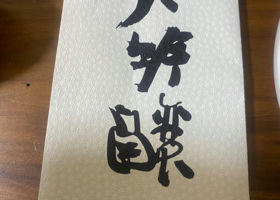 大吟醸